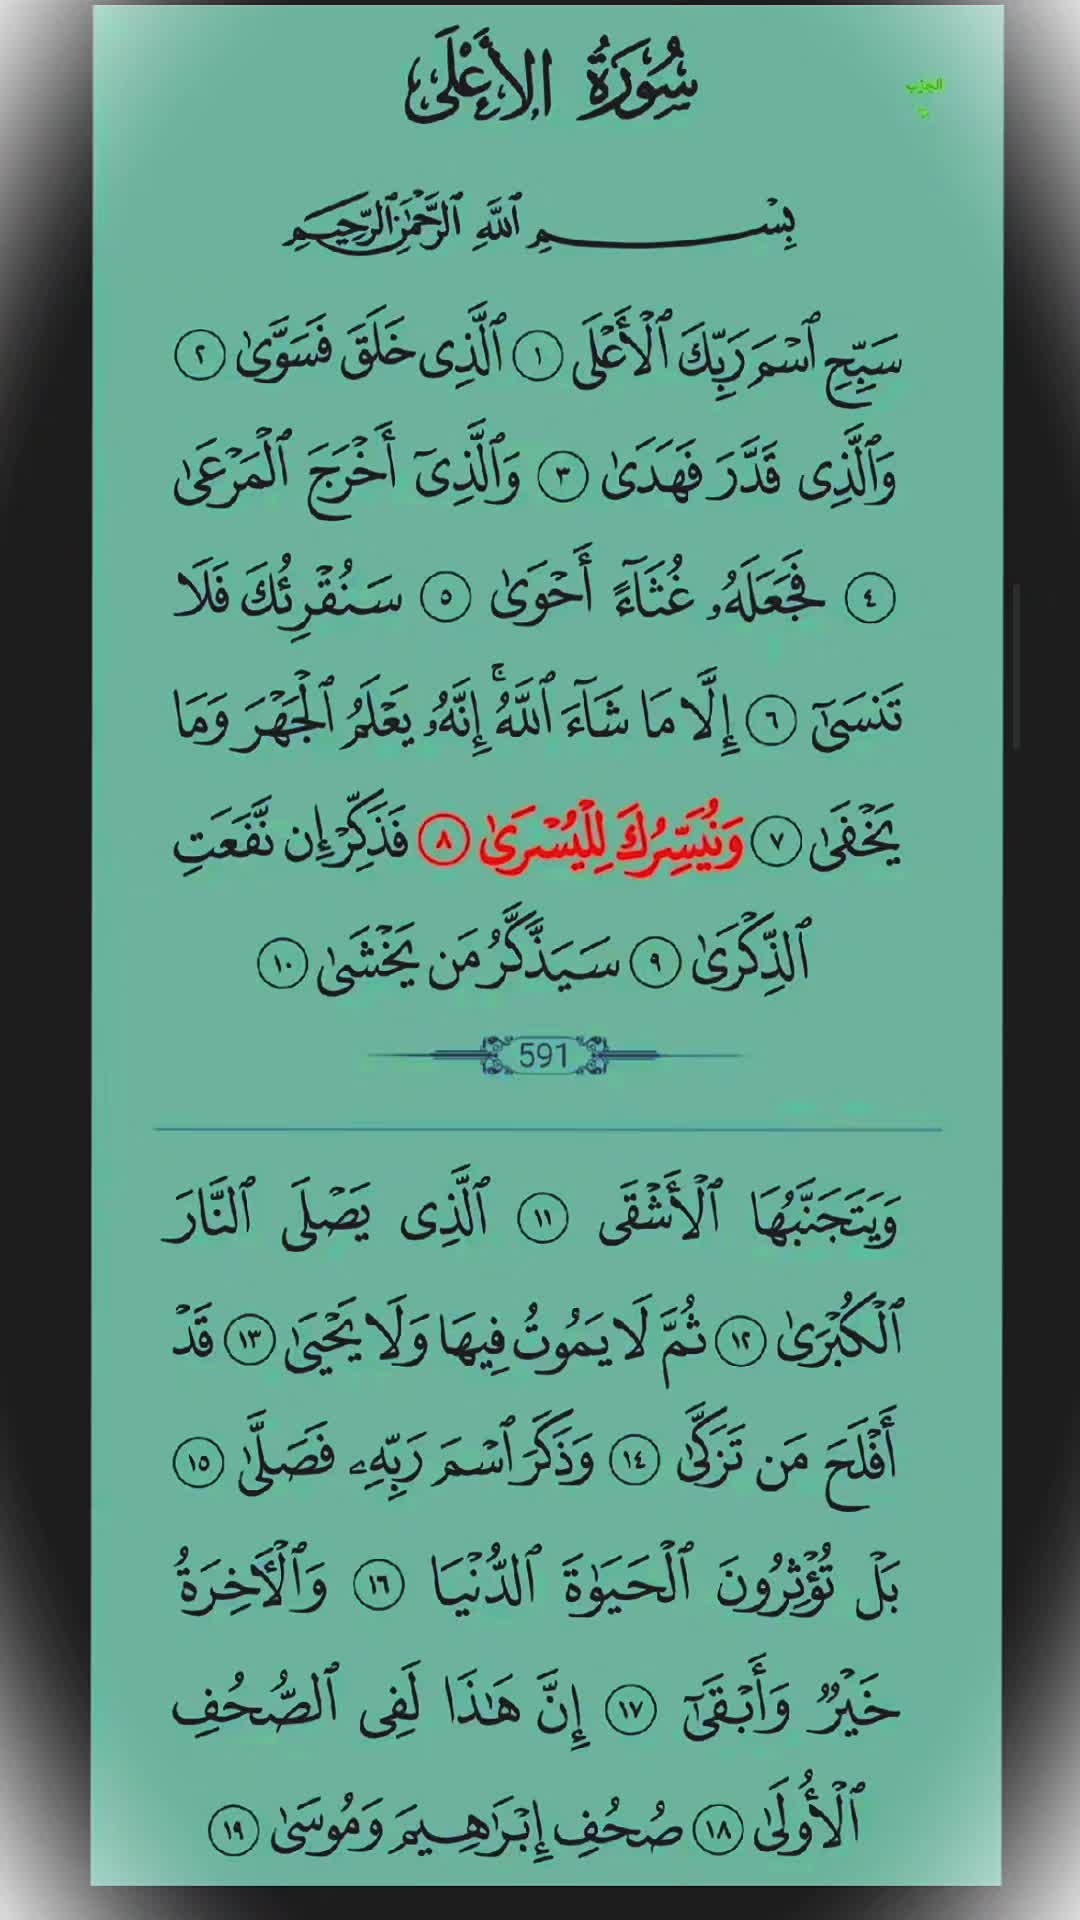 سُورَةُ الأَعْلَى
الحزب
بِسْمِ ٱللَّهِ ٱلرَّحْمَٰنِ ٱلرَّحِيمِ
سَبِّحِ ٱسْمَ رَبِّكَ ٱلْأَعْلَى ١ ٱلَّذِى خَلَقَ فَسَوَّىٰ ٢
وَٱلَّذِى قَدَّرَ فَهَدَىٰ ٣ وَٱلَّذِىٓ أَخْرَجَ ٱلْمَرْعَىٰ
٤ فَجَعَلَهُۥ غُثَآءً أَحْوَىٰ ٥ سَنُقْرِئُكَ فَلَا
تَنسَىٰٓ ٦ إِلَّا مَا شَآءَ ٱللَّهُ ۚ إِنَّهُۥ يَعْلَمُ ٱلْجَهْرَ وَمَا
يَخْفَىٰ ٧ وَنُيَسِّرُكَ لِلْيُسْرَىٰ ٨ فَذَكِّرْ إِن نَّفَعَتِ
ٱلذِّكْرَىٰ ٩ سَيَذَّكَّرُ مَن يَخْشَىٰ ١٠
591
وَيَتَجَنَّبُهَا ٱلْأَشْقَى ١١ ٱلَّذِى يَصْلَى ٱلنَّارَ
ٱلْكُبْرَىٰ ١٢ ثُمَّ لَا يَمُوتُ فِيهَا وَلَا يَحْيَىٰ ١٣ قَدْ
أَفْلَحَ مَن تَزَكَّىٰ ١٤ وَذَكَرَ ٱسْمَ رَبِّهِۦ فَصَلَّىٰ ١٥
بَلْ تُؤْثِرُونَ ٱلْحَيَوٰةَ ٱلدُّنْيَا ١٦ وَٱلْأَخِرَةُ
خَيْرٌ وَأَبْقَىٰٓ ١٧ إِنَّ هَٰذَا لَفِى ٱلصُّحُفِ
ٱلْأُولَىٰ ١٨ صُحُفِ إِبْرَٰهِيمَ وَمُوسَىٰ ١٩